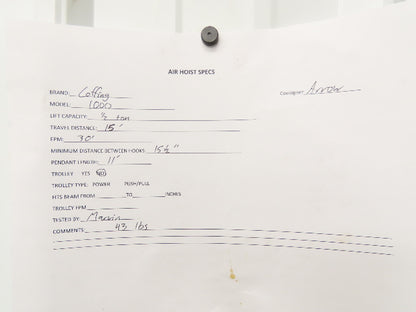 AIR HOIST SPECS
BRAND: Coffing
Consignor: Arrow
MODEL: 1000
LIFT CAPACITY: ½ ton
TRAVEL DISTANCE: 15'
FPM: 30'
MINIMUM DISTANCE BETWEEN HOOKS 15½"
PENDANT LENGTH: 11'
TROLLEY YES NO
TROLLEY TYPE: POWER PUSH/PULL
FITS BEAM FROM TO INCHES
TROLLEY FPM
TESTED BY: Marvin
COMMENTS: 43 lbs